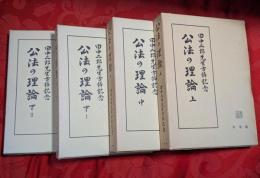 田中二郎先生古稀記念
公法の理論
上
有斐閣
田中二郎先生古稀記念
公法の理論
中
田中二郎先生古稀記念
公法の理論
下Ⅰ
田中二郎先生古稀記念
公法の理論
下Ⅱ